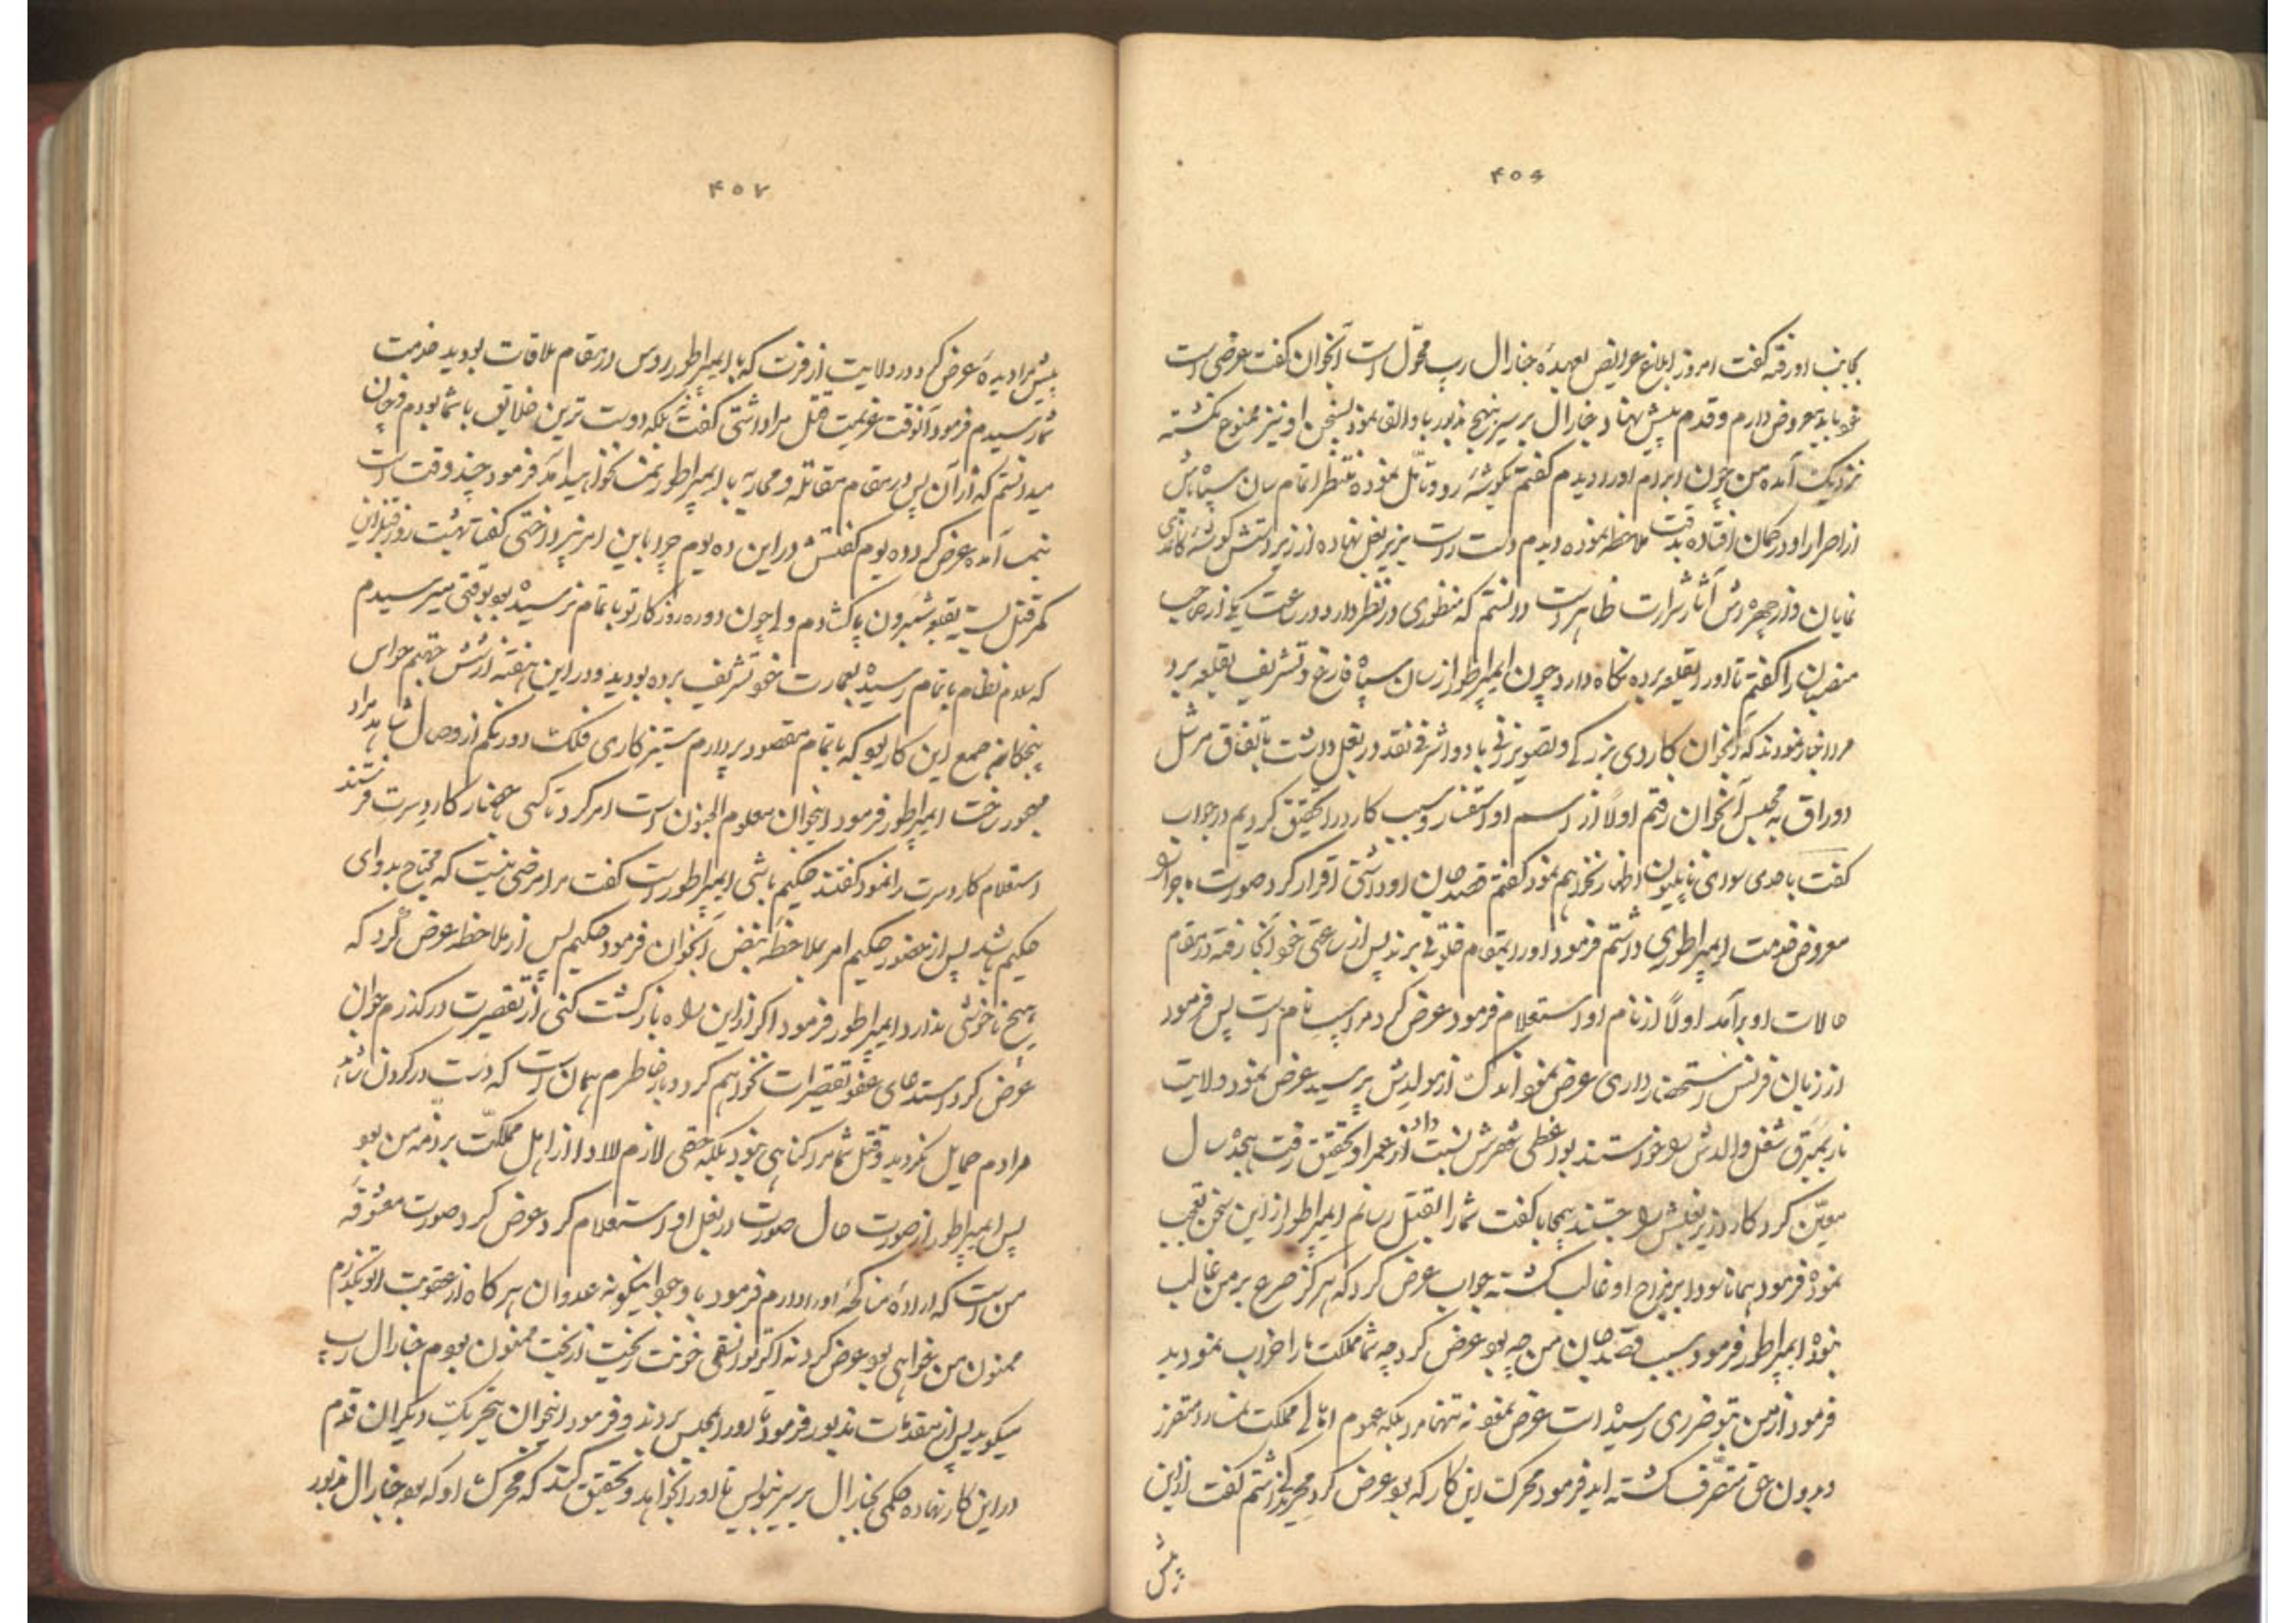 ۴۰۶
بجانب او رفته گفت امروز ابلاغ عرایض بعهدهٔ جنارال رپ محول است آنجوان گفت عرضی است
خود باید معروض دارم و قدم پیش نهاد جنارال برسیر بنهج مذبور باو القا نمود بسخن او نیز ممنوع نگشته
نزدیک آمد من چون ابرام او را دیدم گفتم بگوشهٔ رو و تأمّل نموده منتظر اتمام سان سپاه باش
از اصرار او در گمان افتاده بدقت ملاحظه نموده دیدم دست راست بزیر بغل نهاده از زیر دستش گوشهٔ کاغذی
نمایان و از چهره‌اش آثار شرارت ظاهر است دانستم که منظوری در نظر دارد در ساعت یکی از صاحب
منصبان را گفتم تا او را بقلعه برده نگاه دارد چون ایمپراطور از سان سپاه فارغ و تشریف بقلعه برد
مرا اخبار نمودند که آنجوان کاردی بزرگ و تصویر زنی با دو اشرفی نقد در بغل داشت باتفاق مرشل
دوراق به محبس آنجوان رفتم اولاً از اسم او استفسار و سبب کارد را تحقیق کردیم در جواب
گفت باحدی سوای ناپلیون اظهار نخواهم نمود گفتم قصد جان او داشتی اقرار کرد صورت ماجرا را
معروض خدمت ایمپراطوری داشتم فرمود او را بمقام خلوتی برند پس از ساعتی خود آنجا رفته در مقام
حالات او برآمد اولاً از نام او استعلام فرمود عرض کرد مرا اسپ نام است پس فرمود
از زبان فرنس استحضار داری عرض نمود اندک از مولدش پرسید عرض نمود ولایت
نارمبرق شغل والدش را خواستند بواعظی شهرش نسبت داد از عمر او تحقیق رفت هیجده سال
معیّن کرد کارد زیر بغلش را جستند بیمحابا گفت شما را بقتل رسانم ایمپراطور از این سخن تعجب
نموده فرمود همانا سودا بر مزاج او غالب گشته جواب عرض کرد که هرگز صرع بر من غالب
نبوده ایمپراطور فرمود سبب قصد جان من چه بود عرض کرد چه شما مملکت ما را خراب نمودید
فرمود از من بتو ضرری رسیده است عرض نمود نه تنها مرا بلکه عموم اهالی مملکت نمسا را متضرر
و بدون حق متصرف گشته اید فرمود محرک این کار که بود عرض کرد محرکی نداشتم گفت از این
پیش
۴۰۷
پیش مرا دیدهٔ عرض کرد در ولایت ازفرت که با ایمپراطور روس در مقام ملاقات بودید خدمت
شما رسیدم فرمود آنوقت عزیمت قتل مرا داشتی گفت نه بلکه دوست ترین خلایق با شما بودم و چنان
میدانستم که از آن پس در مقام مقاتله و محاربه با ایمپراطور نمسا نخواهید آمد فرمود چند وقت است
بنمسا آمدهٔ عرض کرد ده یوم گفتش در این ده یوم چرا باین امر نپرداختی گفتا بهشت روز قبل از این
کمر قتل بسته بقلعه شنبرون پا گشادم و لی چون دوره روزگار تو باتمام نرسیده بود وقتی میرسیدم
که سلام نظام باتمام رسیده بعمارت خود تشریف برده بودید و در این هفته از شش جهتم حواس
پنجگانه جمع این کار بود که باتمام مقصود پردازم ستیزه کاری فلک دور نکم از وصال شاهد مراد
مهجور ساخت ایمپراطور فرمود اینجوان معلوم الجنون است امر کرد تا کسی باحضار کارویسرت فرستند
استعلام کارویسرت را نمود گفتند حکیم باشی ایمپراطور است گفت مرا مرضی نیست که محتاج بدوای
حکیم باشد پس از حضور حکیم امر بملاحظهٔ نبض آنجوان فرمود حکیم پس از ملاحظه عرض کرد که
هیچ ناخوشی ندارد ایمپراطور فرمود اگر از این راه بازگشت کنی از تقصیرت درگذرم جوان
عرض کرد استدعای عفو تقصیرات نخواهم کرد و بار خاطرم همان است که دست در گردن شاهد
مرادم حمایل نگردید و قتل شما مرا گناهی نبود بلکه حقی لازم الادا از اهل مملکت بر ذمه من بود
پس ایمپراطور از صورت حال صورت در بغل او استعلام کرد عرض کرد صورت معشوقهٔ
من است که ارادهٔ مناکحهٔ او را دارم فرمود با وجود اینگونه عدوان هر گاه از عقوبت تو بگذرم
ممنون من خواهی بود عرض کرد نه اگر توانستمی خونت ریخت از بخت ممنون بودم جنارال رپ
میگوید پس از مقدمات مذبور فرمود تا او را بمحبس بردند و فرمود اینجوان بتحریک دیگران قدم
در این کار نهاده حکمی بجنارال برسیر بنویس تا او را بخواهد و تحقیق کند که محرک او که بود جنارال مذبور